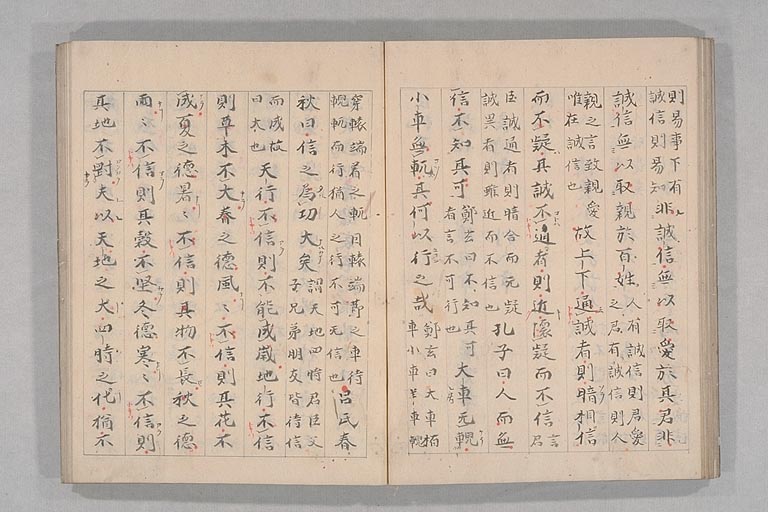 則易事下有誠信則易知非誠信無以取愛於其君非
誠信無以取親於百姓人有誠信則君愛之君有誠信則人
親之言致親愛唯在誠信也故上下通誠者則暗相信
而不疑其誠不通者則近懷疑而不信言君
臣誠通者則暗合而无疑誠異者則雖近而不信也孔子曰人而無
信不知其可鄭玄曰不知其可者言不可行也大車无輗
小車無軏其何以行之哉鄭玄曰大車栢車小車羊車輗
穿轅端着之軏因轅端著之車待輗軏而行猶人之行不可无信也呂氏春
秋曰信之為功大矣謂天地四時君臣父子兄弟朋友皆待信
而成故曰大也天行不信則不能成歲地行不信
則草木不大春之德風〻不信則其花不
成夏之德暑〻不信則其物不長秋之德
雨〻不信則其穀不坚冬德寒〻不信則
其地不對夫以天地之大四時之代猶不